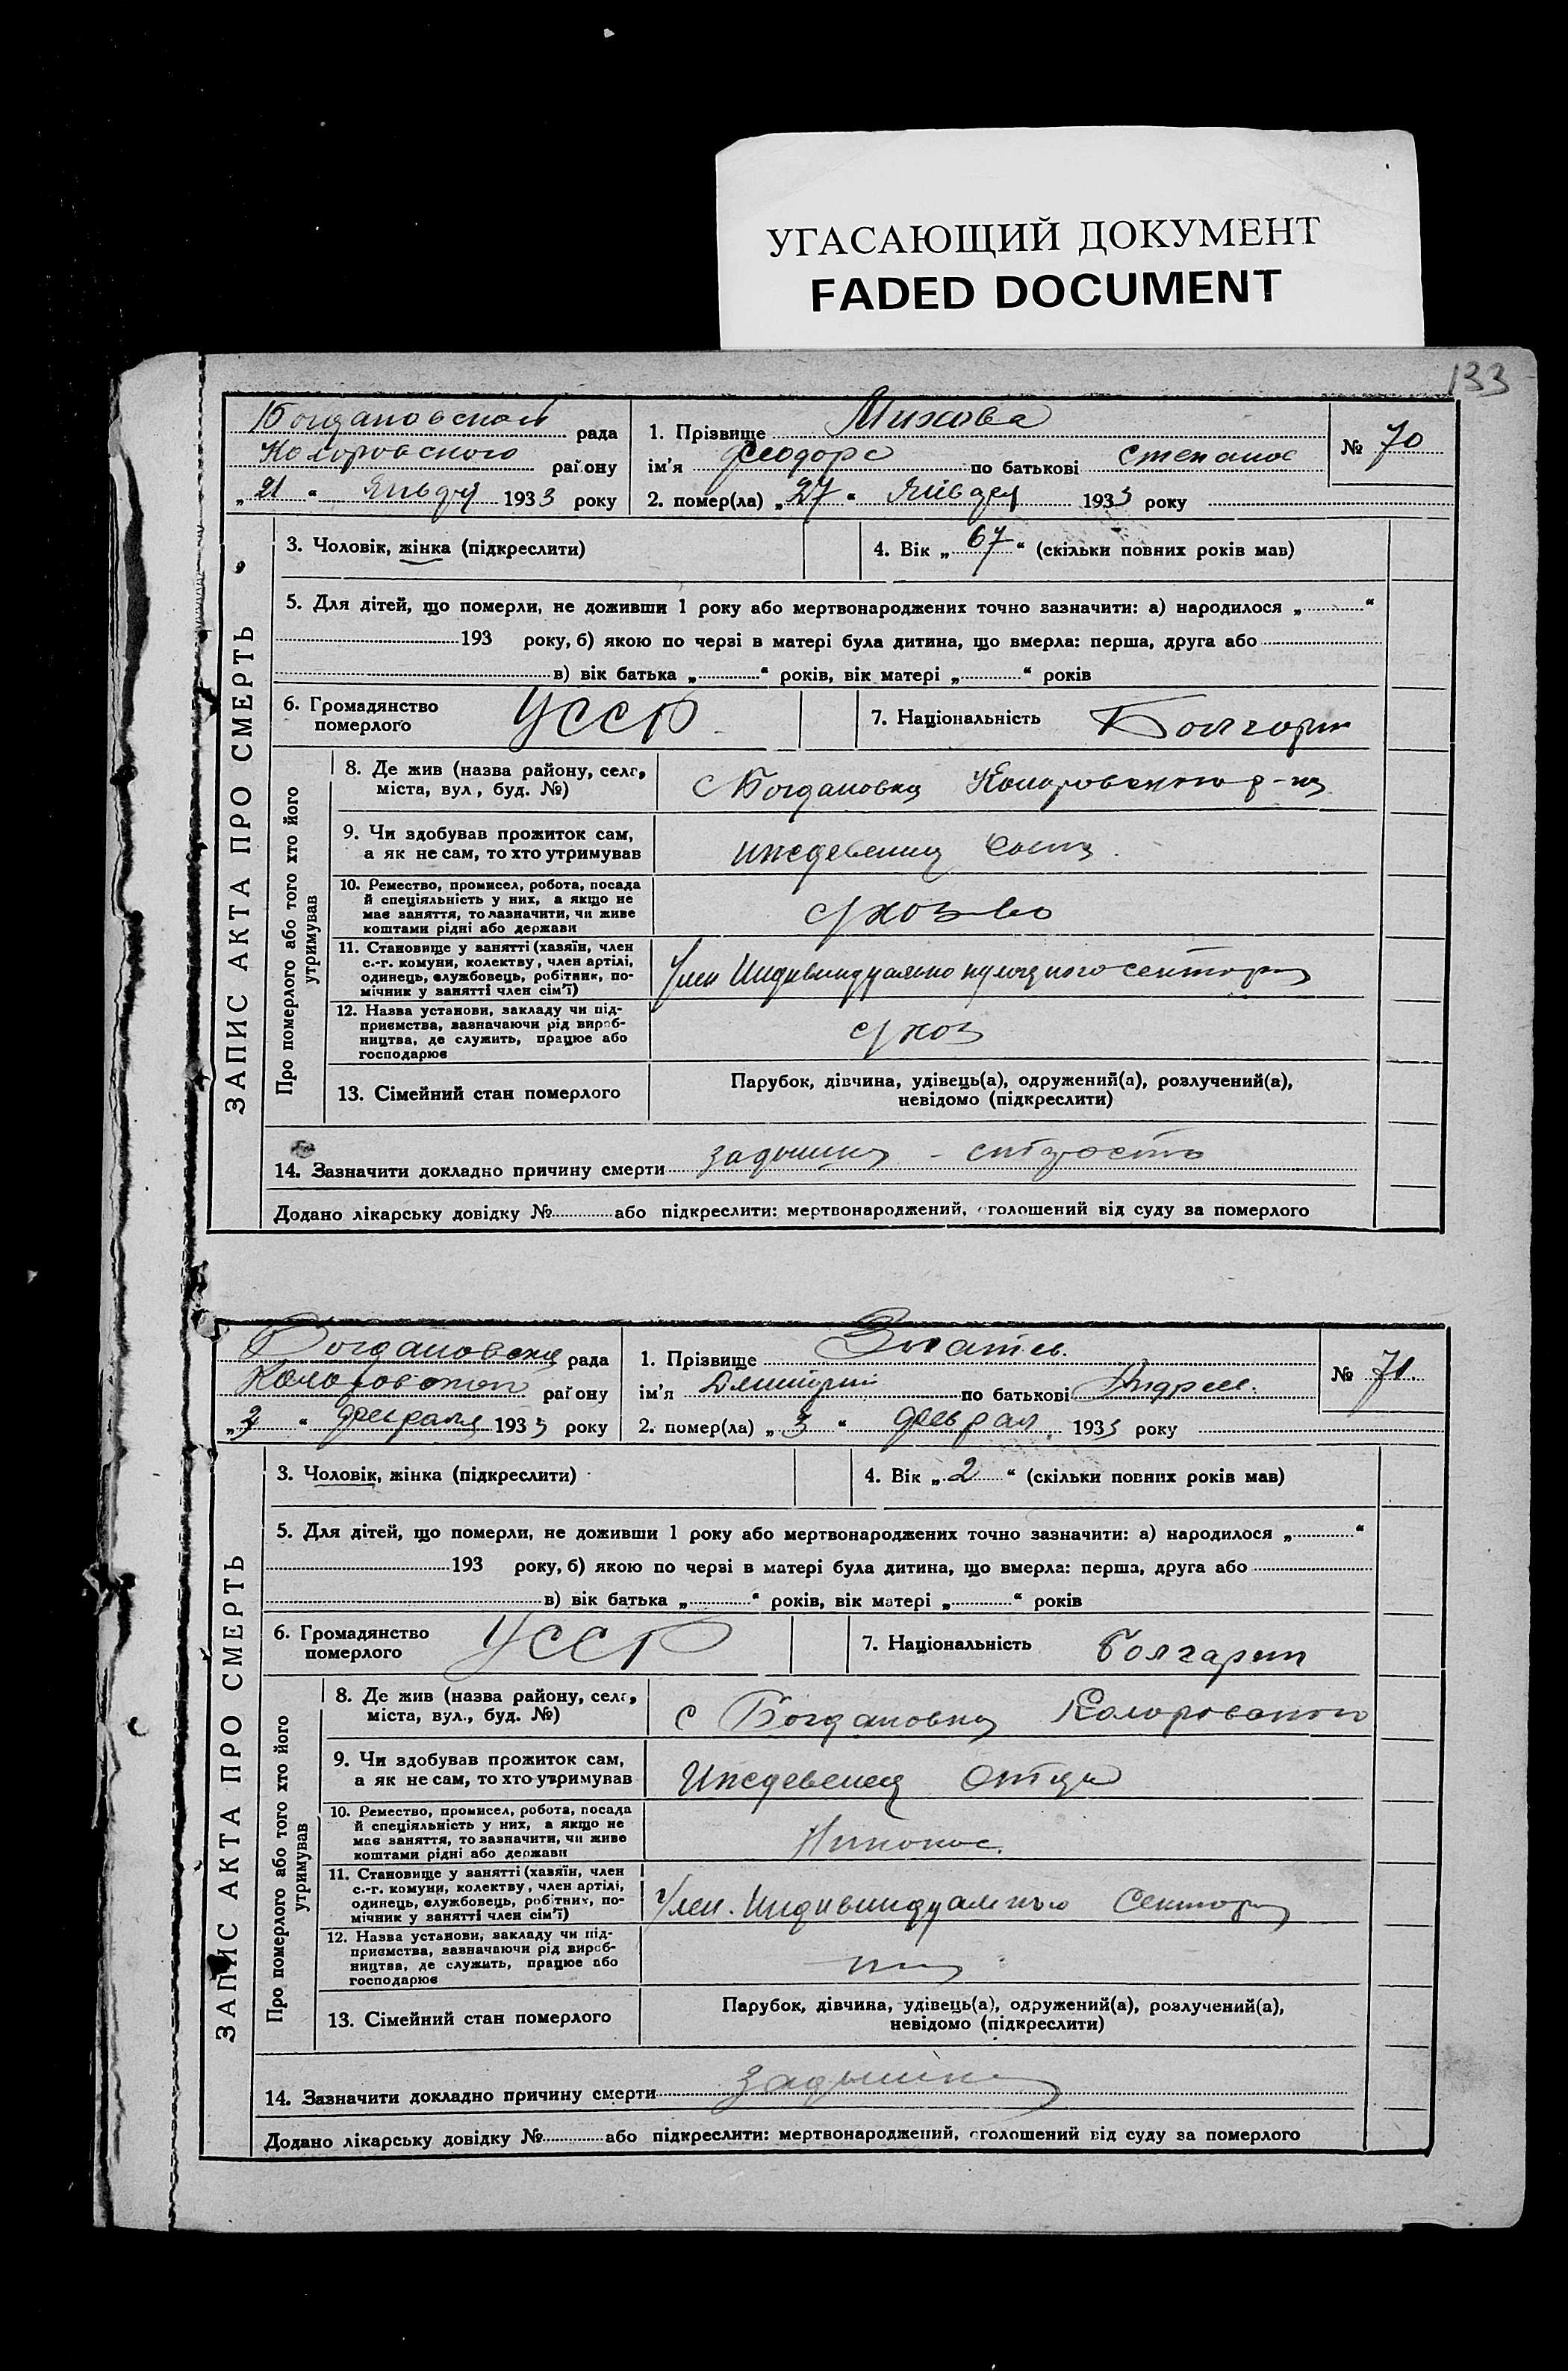 УГАСАЮЩИЙ ДОКУМЕНТ
FADED DOCUMENT
133
Богдановской рада
Коларовского району
„21“ Января 1933 року
1. Прізвище Михова
ім'я Феодора по батькові Степанов
№ 70
2. помер(ла) „27“ Января 1933 року
ЗАПИС АКТА ПРО СМЕРТЬ
3. Чоловік, жінка (підкреслити)
4. Вік „67“ (скільки повних років мав)
5. Для дітей, що померли, не доживши 1 року або мертвонароджених точно зазначити: а) народилося „ “
193 року, б) якою по черзі в матері була дитина, що вмерла: перша, друга або
в) вік батька „ “ років, вік матері „ “ років
6. Громадянство
померлого
УССР
7. Національність Болгарк
Про померлого або того хто його
утримував
8. Де жив (назва району, села,
міста, вул., буд. №)
с Богдановка Коларовского р-на
9. Чи здобував прожиток сам,
а як не сам, то хто утримував
иждевениц сына
10. Ремество, промисел, робота, посада
й спеціяльність у них, а якщо не
має заняття, то зазначити, чи живе
коштами рідні або держави
с/хоз-во
11. Становище у занятті (хазяїн, член
с.-г. комуни, колективу, член артілі,
одинець, службовець, робітник, по-
мічник у занятті член сім'ї)
Член Индивиндуально сектора
12. Назва установи, закладу чи під-
приємства, зазначаючи рід вироб-
ництва, де служить, працює або
господарює
с/хоз
13. Сімейний стан померлого
Парубок, дівчина, удівець(а), одружений(а), розлучений(а),
невідомо (підкреслити)
14. Зазначити докладно причину смерти задышка - старость
Додано лікарську довідку № або підкреслити: мертвонароджений, оголошений від суду за померлого
Богдановска рада
Коларовской району
„3“ февраля 1933 року
1. Прізвище Златев.
ім'я Дмитрий по батькові Андрее.
№ 71.
2. помер(ла) „3“ феврал 1933 року
ЗАПИС АКТА ПРО СМЕРТЬ
3. Чоловік, жінка (підкреслити)
4. Вік „2“ (скільки повних років мав)
5. Для дітей, що померли, не доживши 1 року або мертвонароджених точно зазначити: а) народилося „ “
193 року, б) якою по черзі в матері була дитина, що вмерла: перша, друга або
в) вік батька „ “ років, вік матері „ “ років
6. Громадянство
померлого
УССР
7. Національність болгарин
Про померлого або того хто його
утримував
8. Де жив (назва району, села,
міста, вул., буд. №)
с Богдановка Коларовского
9. Чи здобував прожиток сам,
а як не сам, то хто утримував
Иждевенец Отца
10. Ремество, промисел, робота, посада
й спеціяльність у них, а якщо не
має заняття, то зазначити, чи живе
коштами рідні або держави
11. Становище у занятті (хазяїн, член
с.-г. комуни, колективу, член артілі,
одинець, службовець, робітник, по-
мічник у занятті член сім'ї)
Член. Индивиндуального Сектора
12. Назва установи, закладу чи під-
приємства, зазначаючи рід вироб-
ництва, де служить, працює або
господарює
13. Сімейний стан померлого
Парубок, дівчина, удівець(а), одружений(а), розлучений(а),
невідомо (підкреслити)
14. Зазначити докладно причину смерти задышка
Додано лікарську довідку № або підкреслити: мертвонароджений, оголошений від суду за померлого